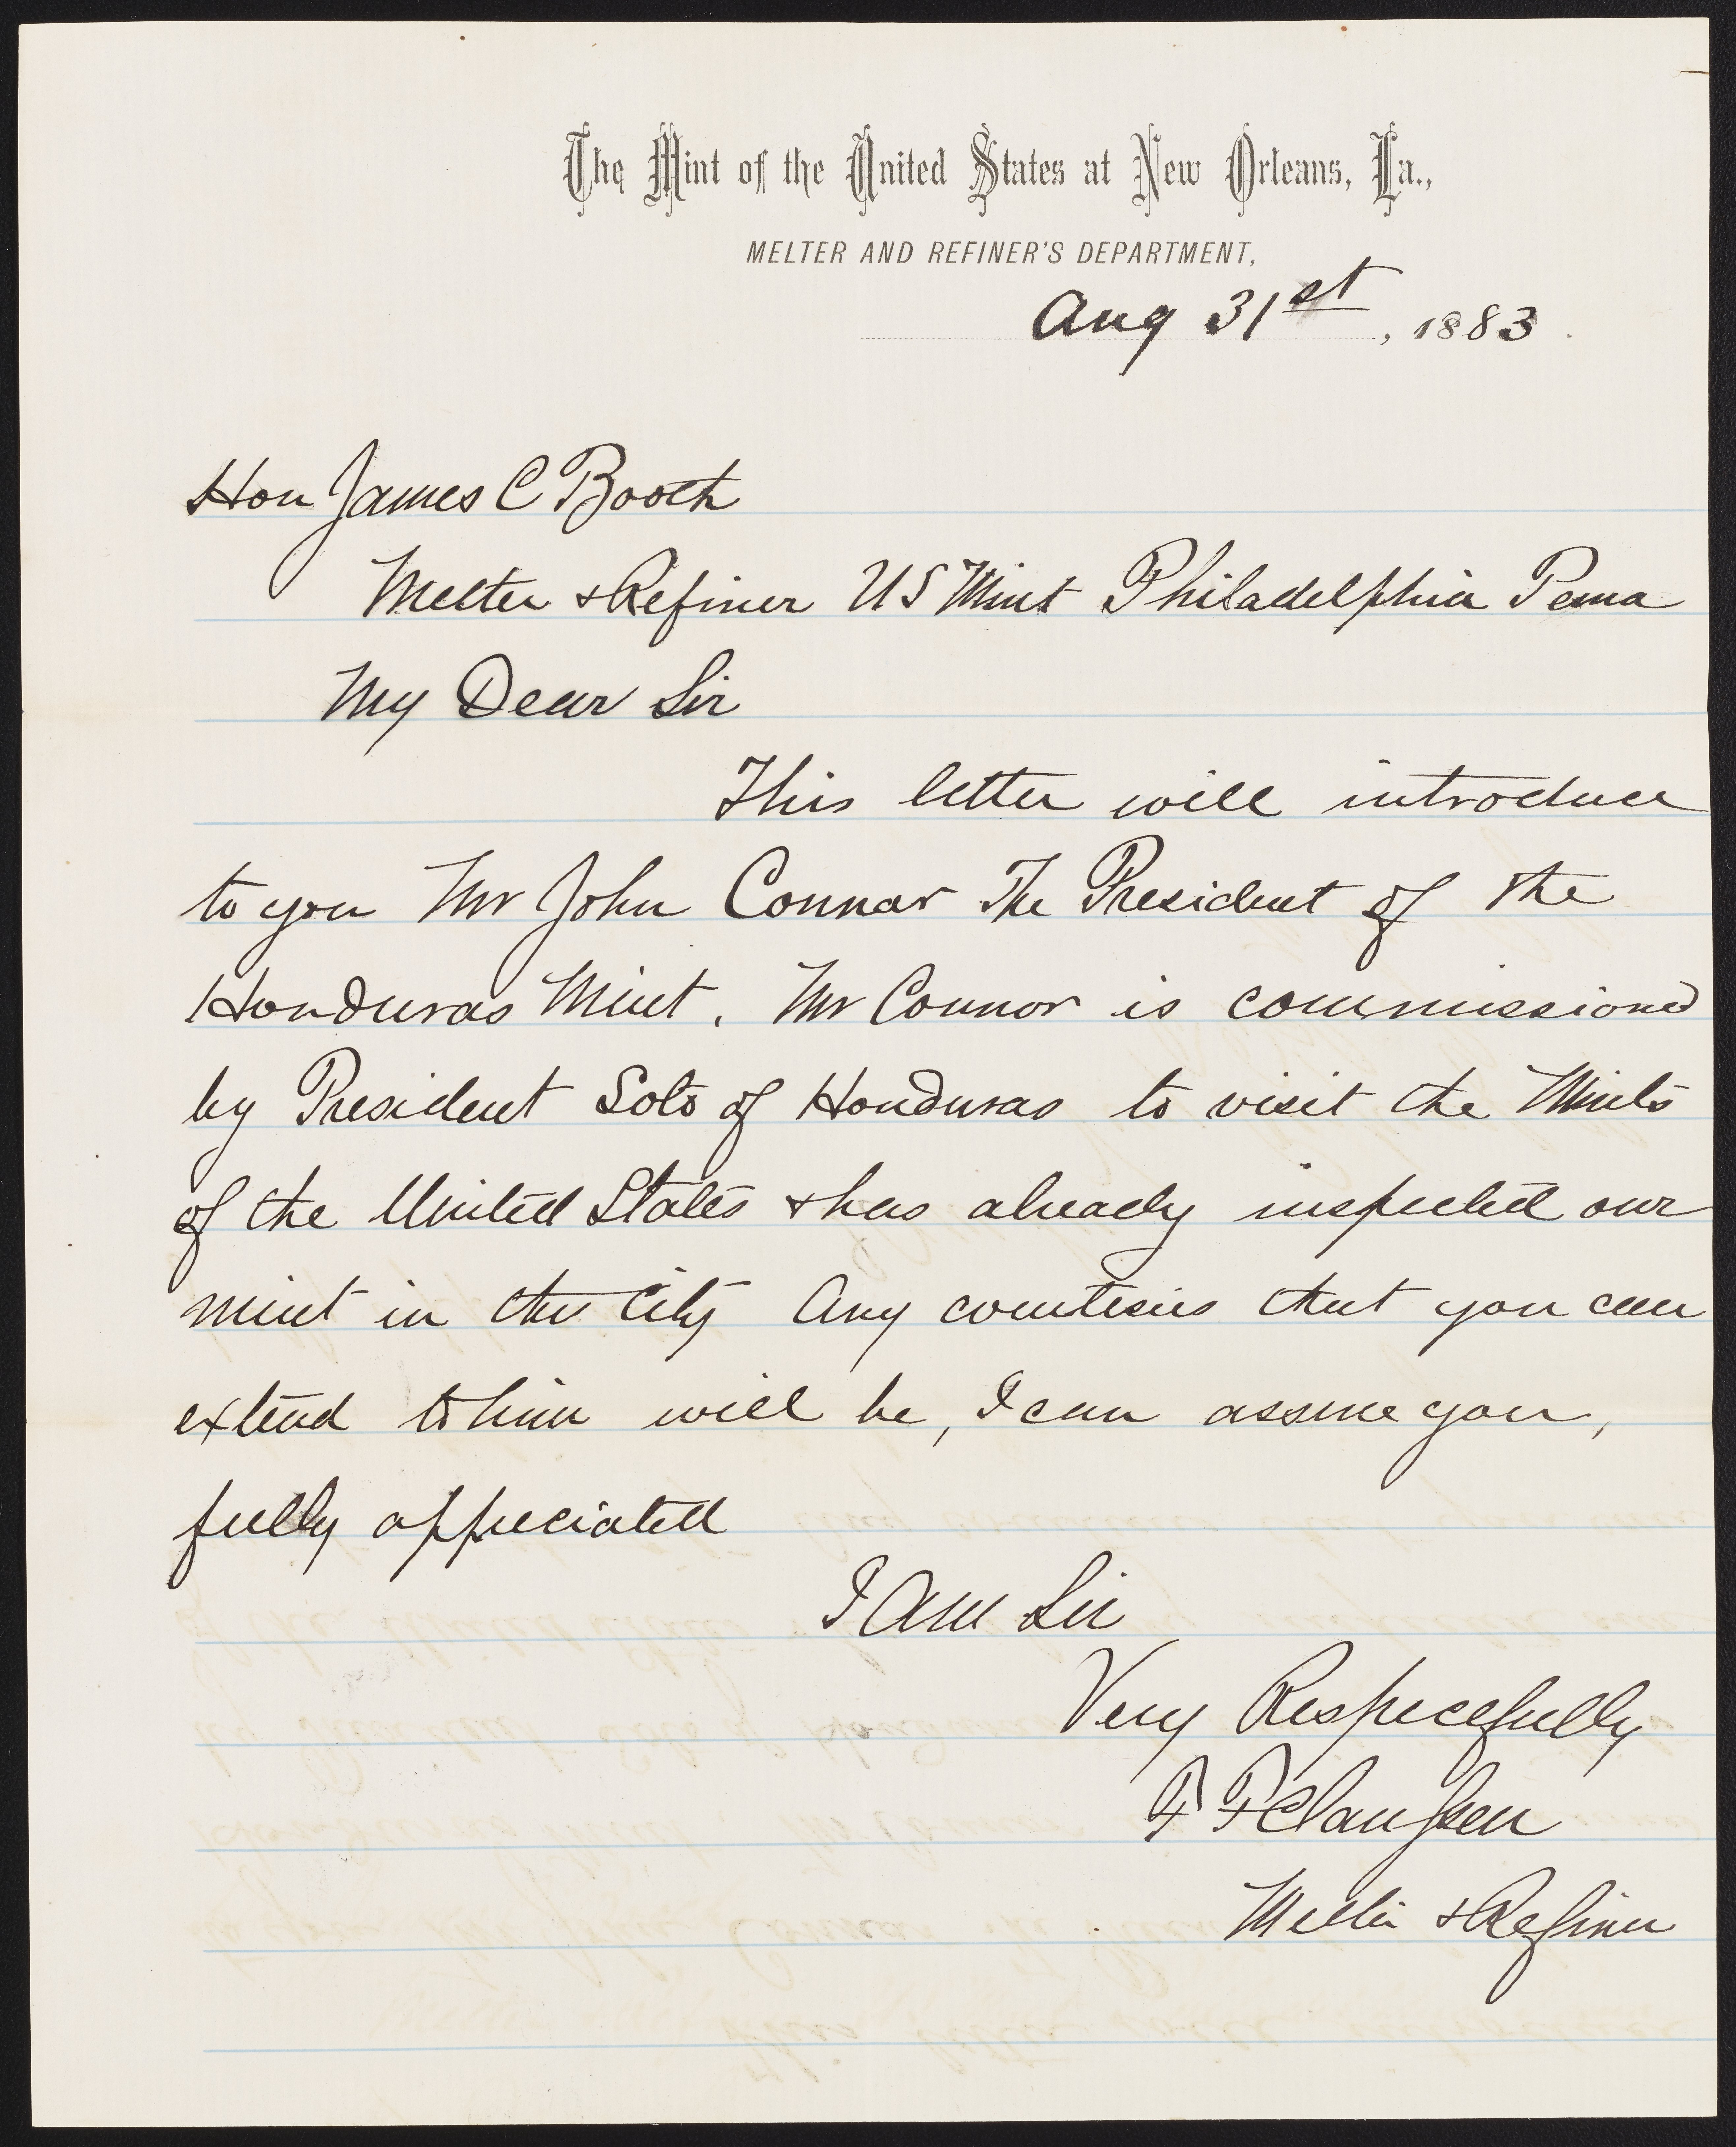 The Mint of the United States at New Orleans, La.,
MELTER AND REFINER'S DEPARTMENT,
Aug 31st, 1883.
Hon James C Booth
Melter & Refiner US Mint Philadelphia Penna
My Dear Sir
This letter will introduce
to you Mr John Connor The President of the
Honduras Mint. Mr Connor is commissioned
by President Soto of Honduras to visit the Mints
of the United States & has already inspected our
mint in the City Any courtesies that you can
extend to him will be, I can assure you,
fully appreciated
I Am Sir
Very Respectfully
Melter & Refiner